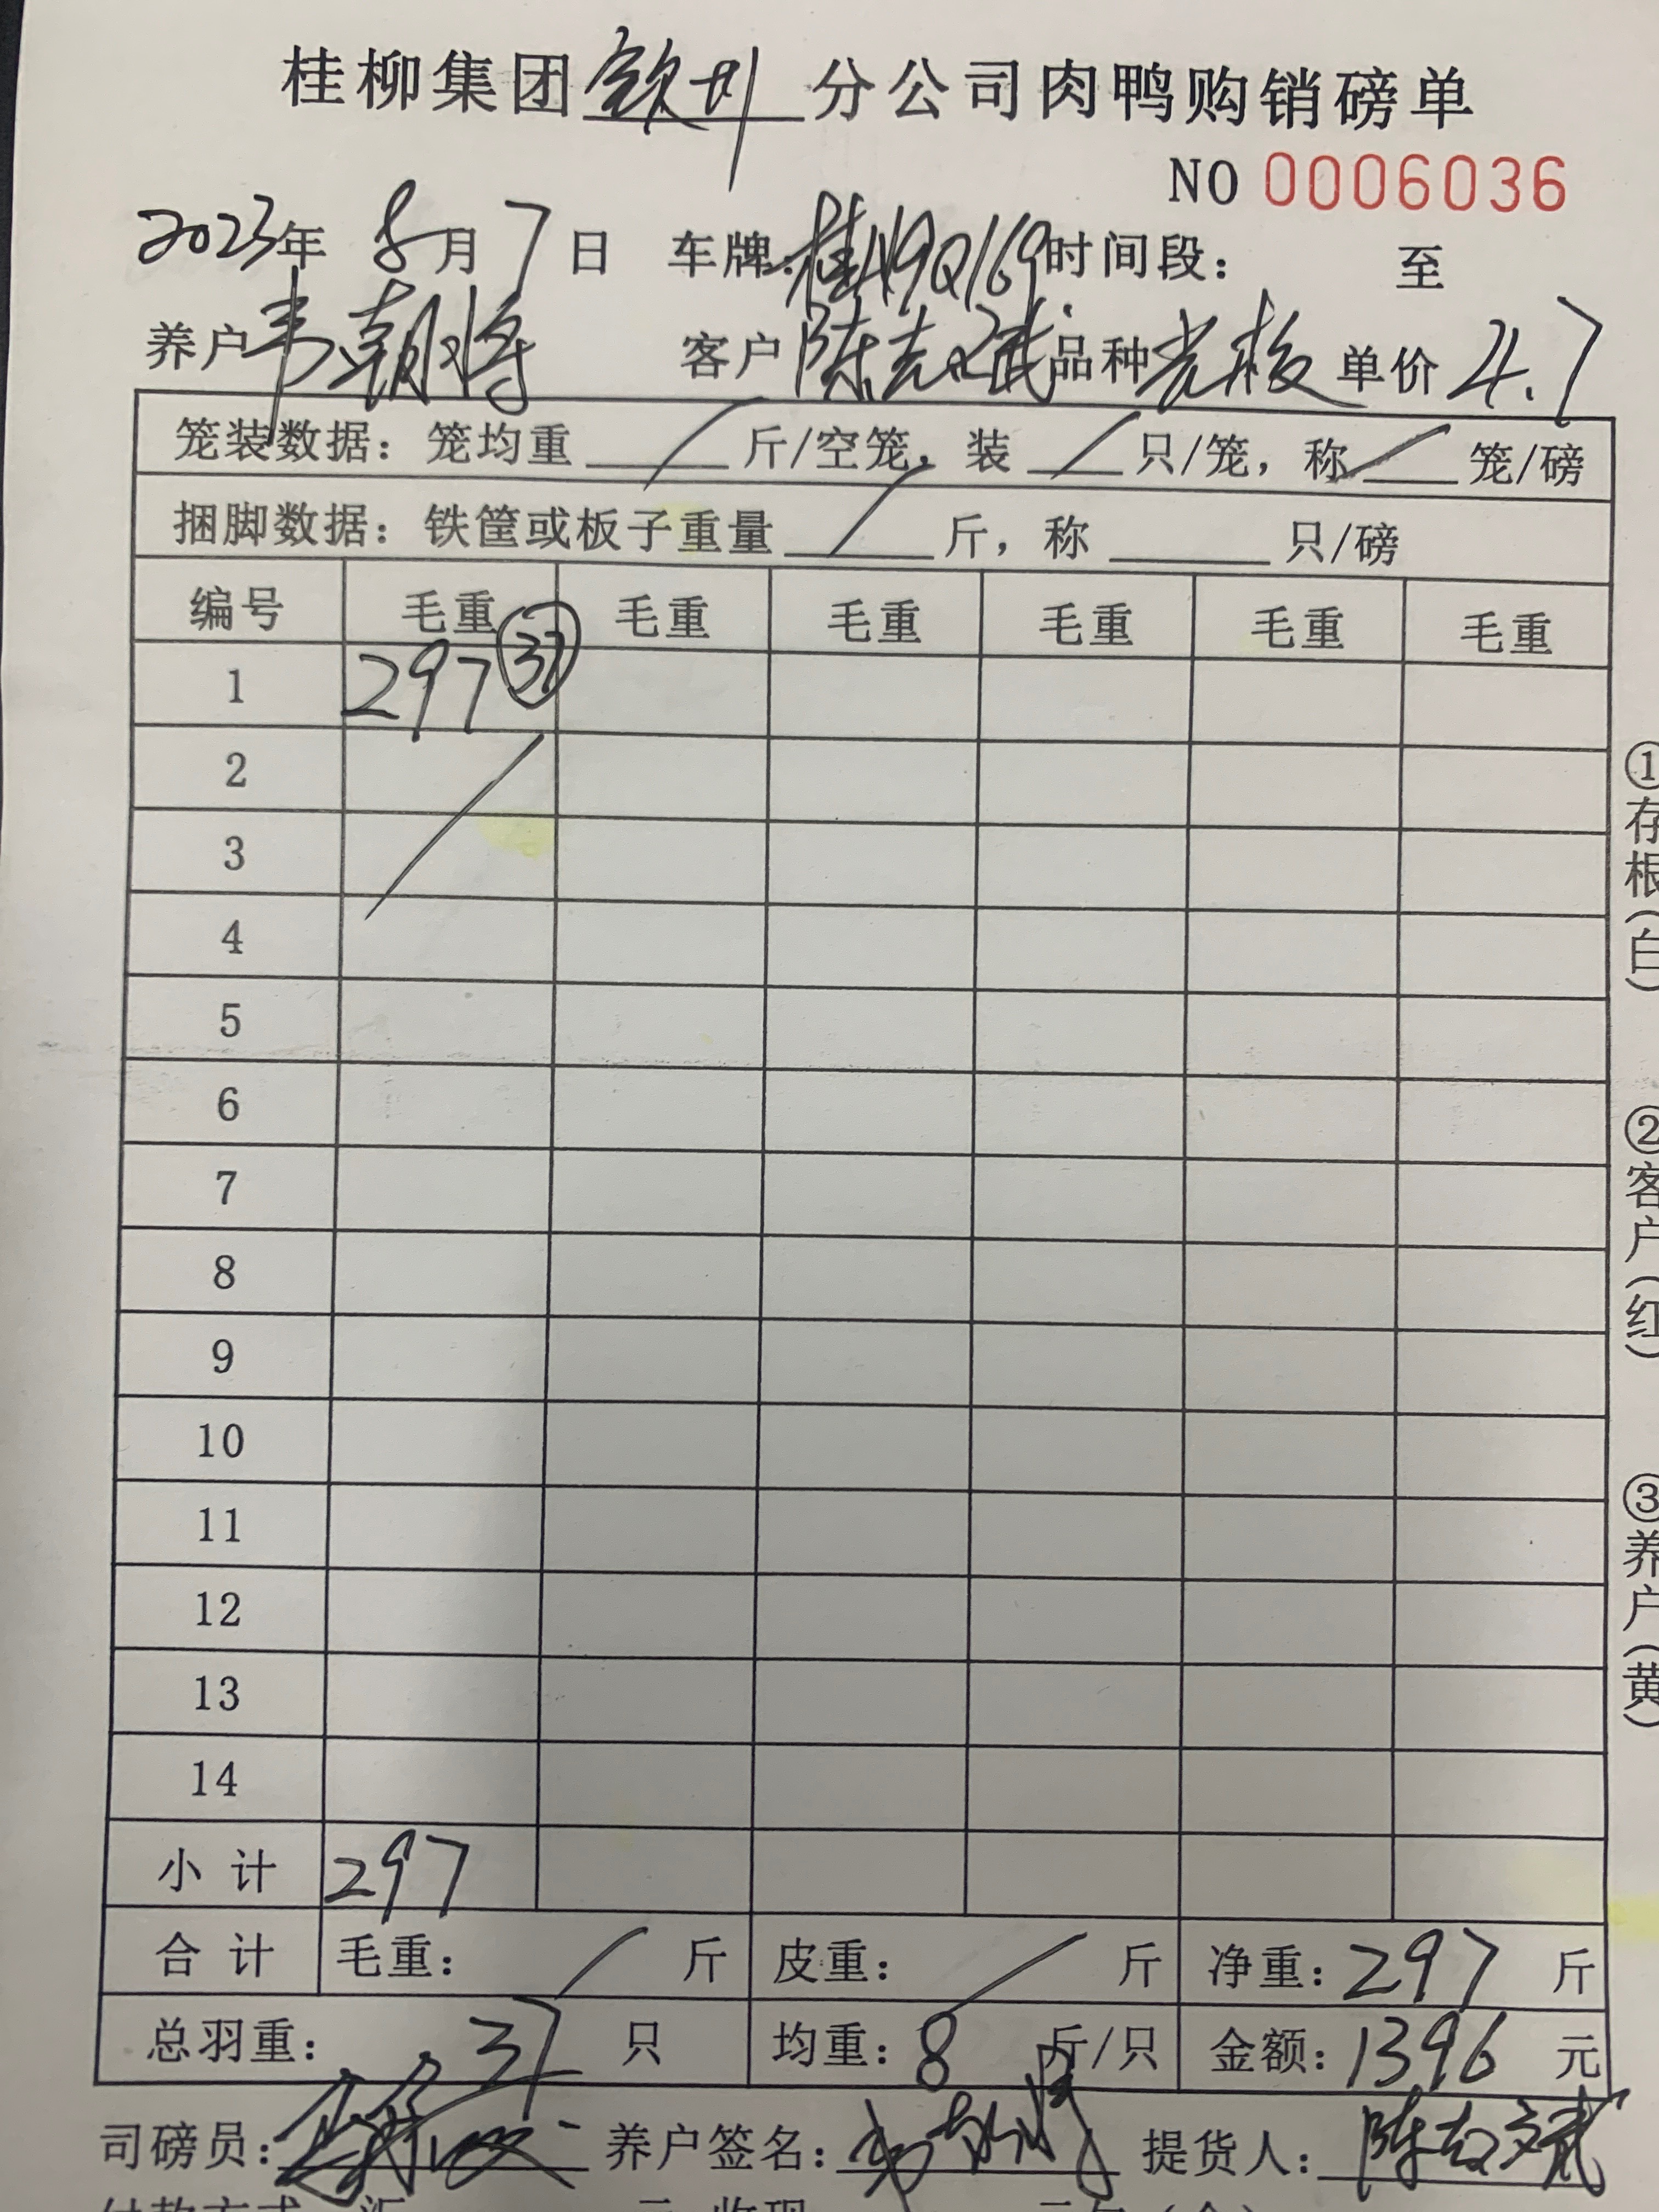 桂柳集团钦州分公司肉鸭购销磅单
NO 0006036
2023年 8月7日 车牌:桂A9Q169 时间段: 至
养户 韦朝将 客户 陈克斌 品种 单价 4.7
笼装数据: 笼均重 / 斤/空笼, 装 / 只/笼, 称 / 笼/磅
捆脚数据: 铁筐或板子重量 / 斤, 称 只/磅
编号 毛重 毛重 毛重 毛重 毛重 毛重
1 297 37
2
3
4
5
6
7
8
9
10
11
12
13
14
小计 297
合计 毛重: / 斤 皮重: / 斤 净重: 297 斤
总羽重: 37 只 均重: 8 斤/只 金额: 1396 元
司磅员: 养户签名: 提货人:
①存根(白)
②客户(红)
③养户(黄)